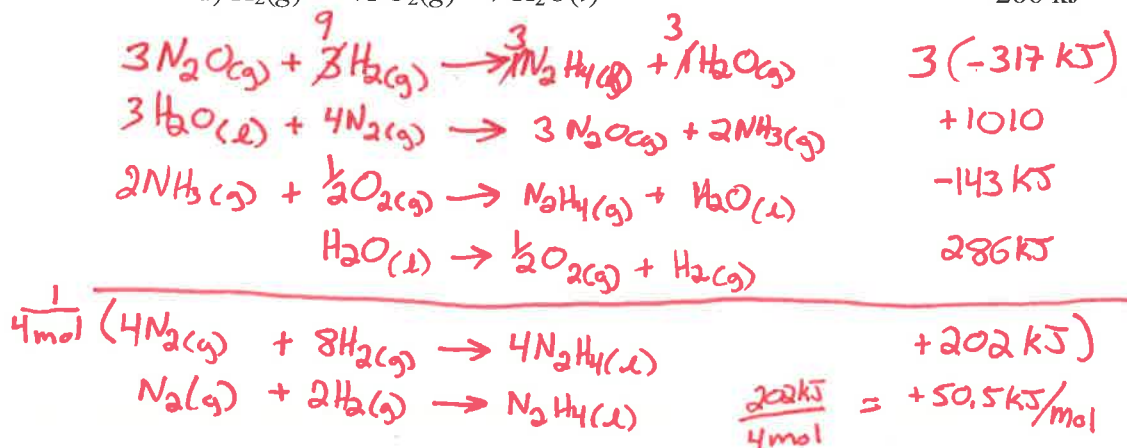 H₂O(l)
3N₂O(g) + 9 3H₂(g) → 3 1N₂H₄(g) + 3 1H₂O(g) 3(-317 kJ)
3H₂O(l) + 4N₂(g) → 3N₂O(g) + 2NH₃(g) +1010
2NH₃(g) + ½O₂(g) → N₂H₄(g) + H₂O(l) -143 kJ
H₂O(l) → ½O₂(g) + H₂(g) 286 kJ
1/4mol (4N₂(g) + 8H₂(g) → 4N₂H₄(l) +202 kJ)
N₂(g) + 2H₂(g) → N₂H₄(l) 202kJ/4mol = +50.5 kJ/mol